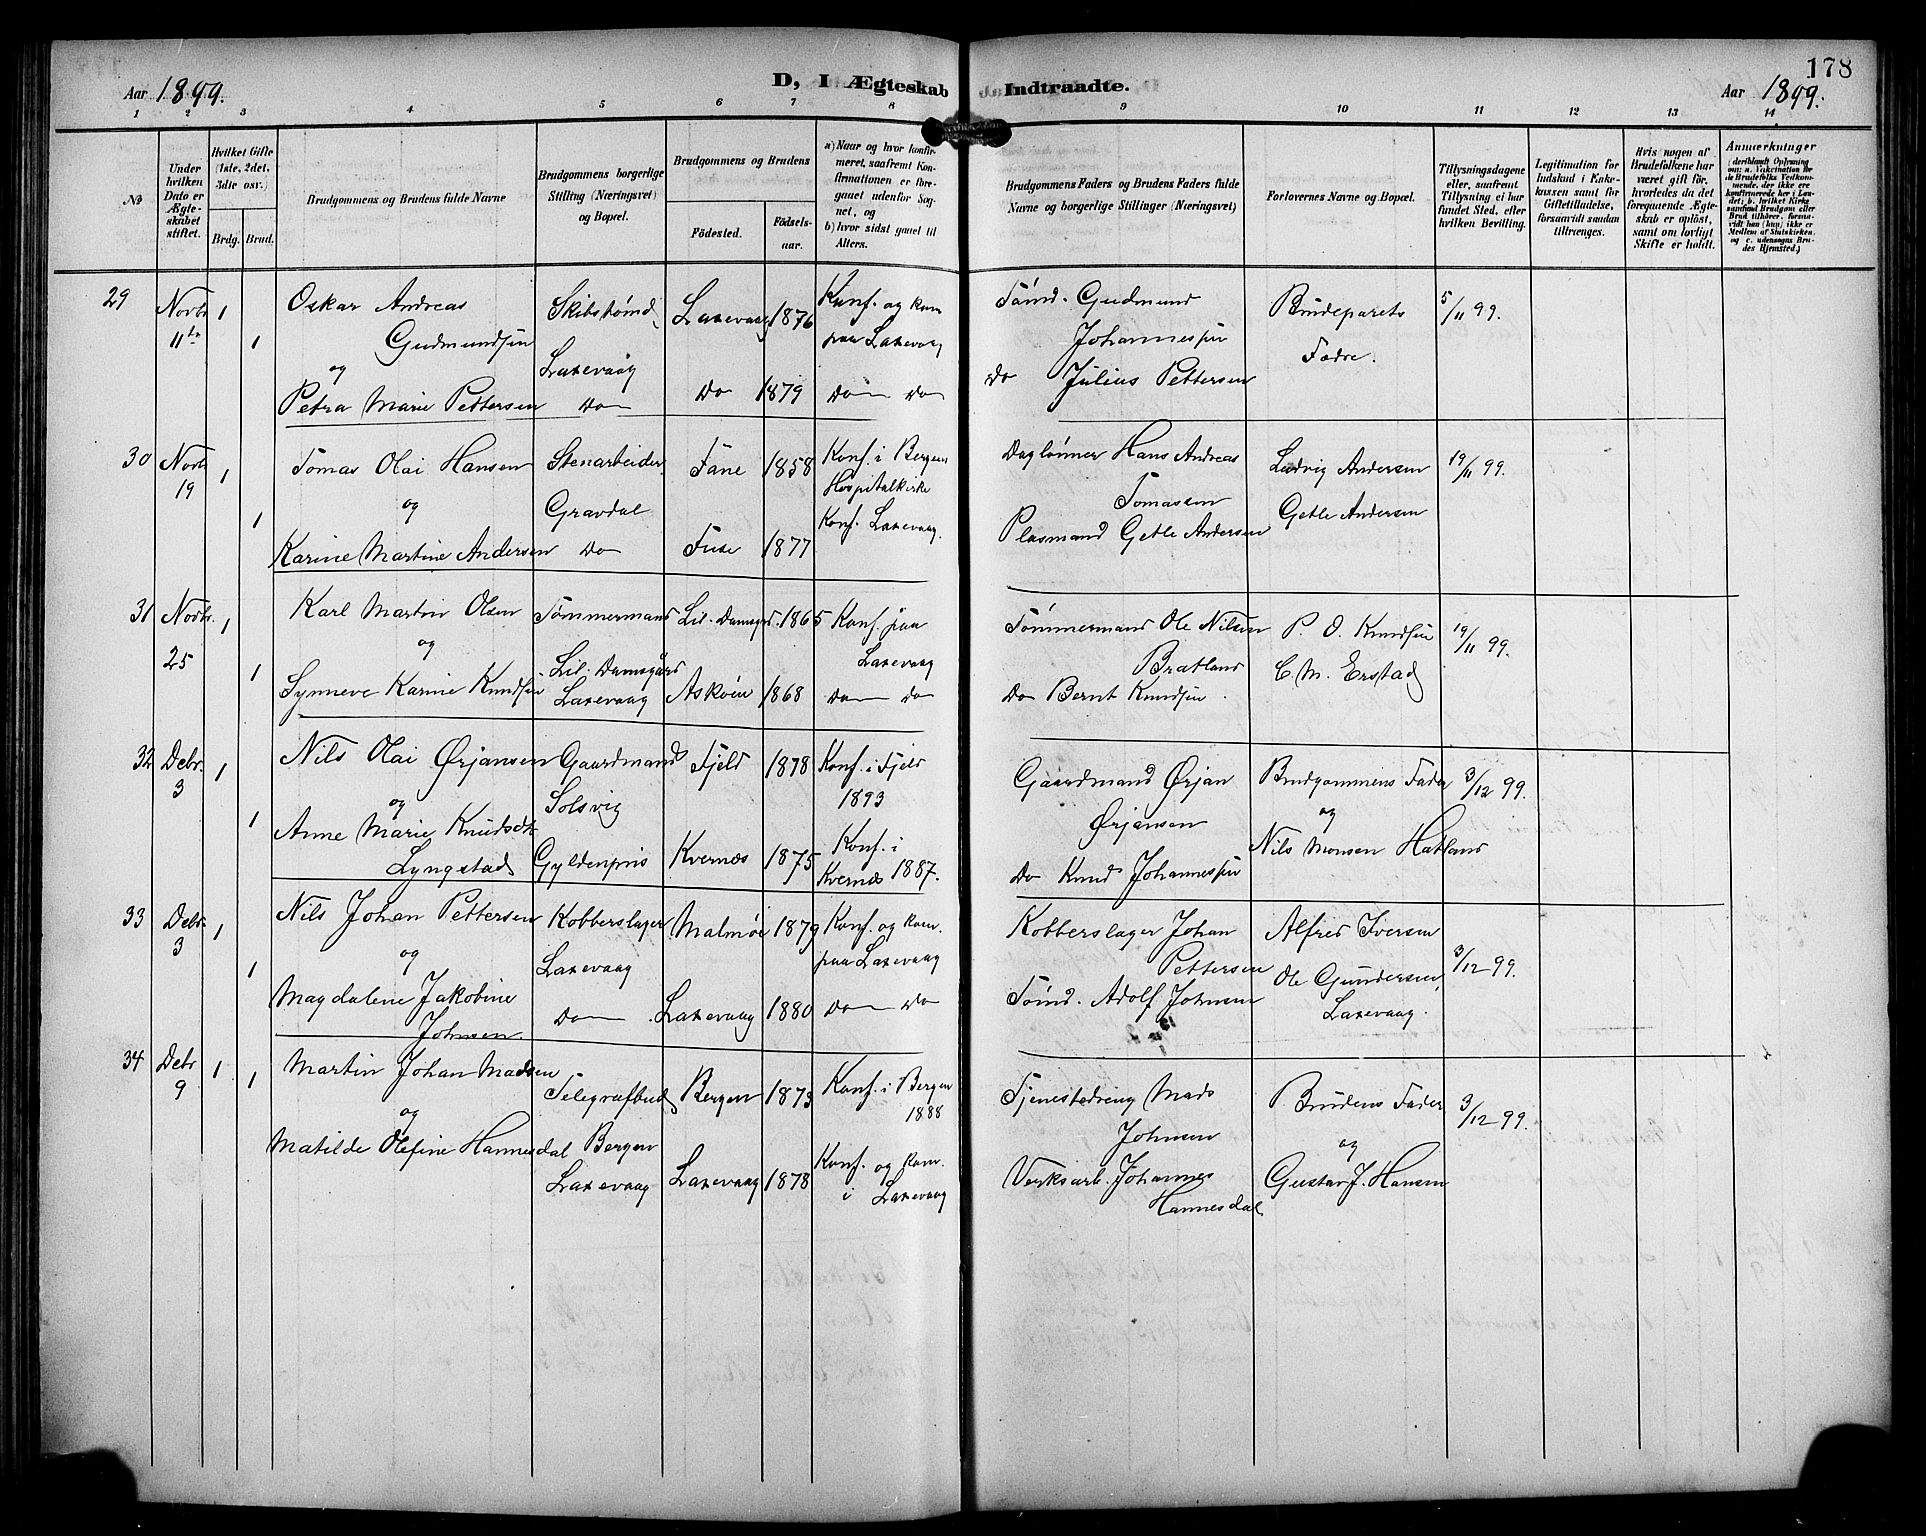 178
Aar 1899.
D, I Ægteskab Indtraadte.
Aar 1899.
1 2 3 4 5 6 7 8 9 10 11 12 13 14
No
Under hvilken Dato er Ægteskabet stiftet.
Hvilket Gifte (1ste, 2det, 3die osv.)
Brdg. Brud.
Brudgommens og Brudens fulde Navne
Brudgommens borgerlige Stilling (Næringsvei) og Bopæl.
Brudgommens og Brudens
Fødested.
Fødselsaar.
a) Naar og hvor konfirmeret, saafremt Konfirmationen er foregaaet udenfor Sognet, og
b) hvor sidst gaaet til Alters.
Brudgommens Faders og Brudens Faders fulde Navne og borgerlige Stillinger (Næringsvei)
Forlovernes Navne og Bopæl.
Tillysningsdagene eller, saafremt Tillysning ei har fundet Sted, efter hvilken Bevilling.
Legitimation for Indskud i Enkekassen samt for Giftetilladelse, forsaavidt saadan tiltrænges.
Hvis nogen af Brudefolkene har været gift før, hvorledes da det foregaaende Ægteskab er opløst, samt om lovligt Skifte er holdt.
Anmerkninger
29 Novbr 11te 1 1
Oskar Andreas
Gudmundsen
og
Petra Marie Pettersen
Skibstømd.
Laxevaag
Do
Laxevaag 1876
Do 1879
Konf. og kom.
paa Laxevaag
Do Do
Tømd. Gudmund
Johannessen
Do Julius Pettersen
Brudeparets
Fædre.
5/11 99.
30 Novbr 19 1 1
Tomas Olai Hansen
og
Karine Martine Andersen
Stenarbeider
Gravdal
Do
Fane 1858
Fuse 1877
Konf. i Bergens
Hospitalkirke
Konf. Laxevaag.
Daglønner Hans Andreas
Tomassen
Plasmand Getle Andersen
Ludvig Andersen
Getle Andersen
19/11 99.
31 Novbr. 25 1 1
Karl Martin Olsen
og
Synneve Karine Knudsen
Tømmermand
Lil. Damsgård
Laxevaag
Lil. Damsgrd. 1865
Askøen 1868
Konf. paa
Laxevaag
Do Do
Tømmermand Ole Nilsen
Bratland
Do Bernt Knudsen.
P. O. Knudsen
C. M. Erstad
19/11 99.
32 Debr. 3 1 1
Nils Olai Ørjansen
og
Anne Marie Knudsdtr
Lyngstad
Gaardmand
Solsvig
Gyldenpris
Fjeld 1878
Kvernes 1875
Konf. i Fjeld
1893
Konf. i
Kvernes 1887.
Gaardmand Ørjan
Ørjansen
Do Knud Johannessen
Brudgommens Fader
og
Nils Monsen Hatland
3/12 99.
33 Debr. 3 1 1
Nils Johan Pettersen
og
Magdalene Jakobine
Johnsen
Kobberslager
Laxevaag
Do
Malmøe 1879
Laxevaag 1880
Konf. og kom.
paa Laxevaag
Do Do
Kobberslager Johan
Pettersen
Tømd. Adolf Johnsen
Alfred Iversen
Ole Gundersen,
Laxevaag.
3/12 99.
34 Debr 9 1 1
Martin Johan Madsen
og
Matilde Olefine Hannesdal
Telegrafbud
Bergen
Laxevaag
Bergen 1873
Laxevaag 1878
Konf. i Bergen
1888
Konf. og kom.
i Laxevaag
Tjenestedreng Mads
Johnsen
Verksarb. Johannes
Hannesdal
Brudens Fader
og
Gustav J. Hansen
3/12 99.